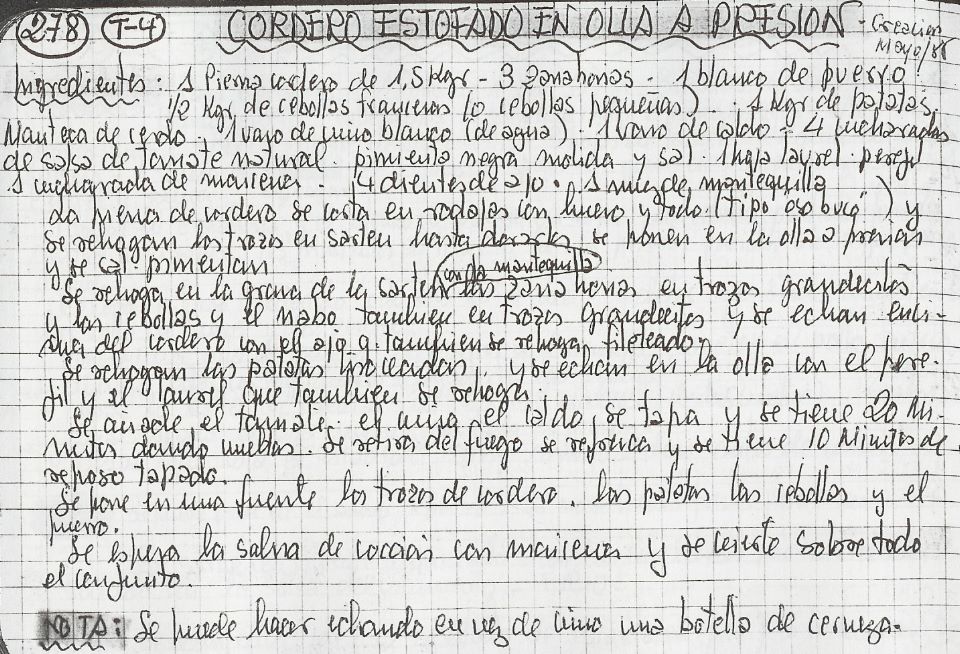 278 T-4 CORDERO ESTOFADO EN OLLA A PRESION - Creacion
Mayo/88
Ingredientes: 1 Pierna cordero de 1,5 Kgr - 3 zanahorias - 1 blanco de puerro
1/2 Kgr de cebollas francesas (o cebollas pequeñas). 1 Kgr de patatas.
Manteca de cerdo. 1 vaso de vino blanco (de agua). 1 vaso de caldo - 4 cucharadas
de salsa de tomate natural. pimienta negra molida y sal. 1 hoja laurel. perejil
1 cucharada de maicena. 4 dientes de ajo. 1 nuez de mantequilla
La pierna de cordero se corta en rodajas con hueso y todo. (tipo osobuco) y
se rehogan los trozos en sarten hasta dorarlos se ponen en la olla a presion
y se sal-pimentan
(con la mantequilla)
Se rehoga en la grasa de la sarten las zanahorias en trozos grandecitos
y las cebollas y el nabo tambien en trozos grandecitos y se echan enci-
ma del cordero con el ajo q. tambien se rehoga fileteado.
Se rehogan las patatas troceadas, y se echan en la olla con el pere-
jil y el laurel que tambien se rehoga.
Se añade el tomate, el vino, el caldo, se tapa y se tiene 20 Mi-
nutos dando vueltas. Se retira del fuego se y se tiene 10 Minutos de
reposo tapado.
Se pone en una fuente los trozos de cordero, las patatas las cebollas y el
puerro.
Se espesa la salsa de coccion con maicena y se vierte sobre todo
el conjunto.
NOTA: Se puede hacer echando en vez de vino una botella de cerveza.